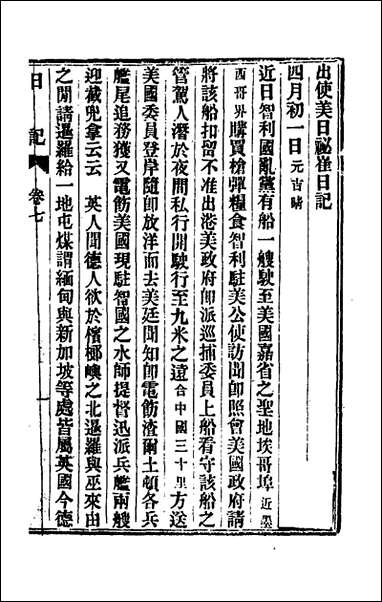 出使美日祕崔日記
四月初一日元吉晴
近日智利國亂黨有船一艘駛至美國嘉省之聖地埃哥埠近墨
西哥界購買槍彈糧食智利駐美公使訪聞卽照會美國政府請
將該船扣留不准出港美政府卽派巡捕委員上船看守該船之
管駕人潛於夜間私行開駛行至九米之遠合中國三十里方送
美國委員登岸隨卽放洋而去美廷聞知卽電飭渣爾士頓各兵
艦尾追務獲又電飭美國現駐智國之水師提督迅派兵艦兩艘
迎截兜拿云云　英人聞德人欲於檳榔嶼之北暹羅與巫來由
之閒請暹羅給一地屯煤謂緬甸與新加坡等處皆屬英國今德
日記　卷七　一